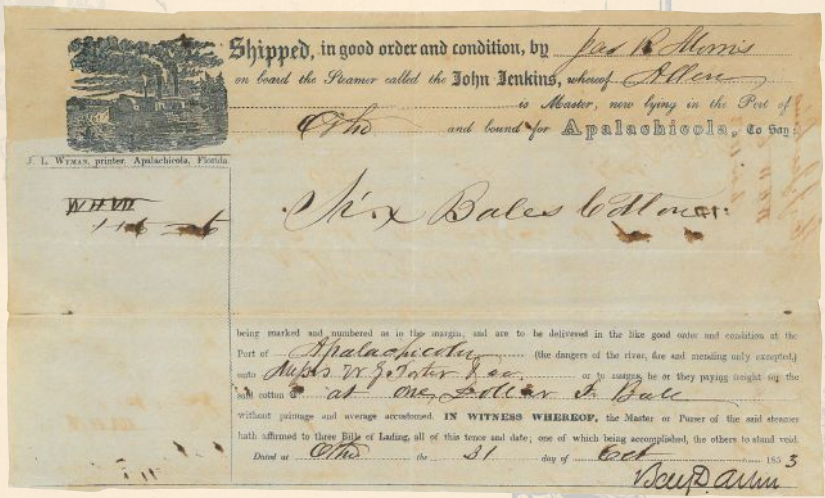 Shipped, in good order and condition, by Jas R Morris
on board the Steamer called the John Jenkins, whereof Allen
is Master, now lying in the Port of
Otho and bound for Apalachicola, To Say:
J. L. Wyman, printer, Apalachicola, Florida.
WHW
Six Bales Cotton
being marked and numbered as in the margin, and are to be delivered in the like good order and condition at the
Port of Apalachicola (the dangers of the river, fire and mending only excepted,)
unto Messrs W G Porter & co or to assigns, he or they paying freight for the
said cotton at one Dollar Bale
without primage and average accustomed. IN WITNESS WHEREOF, the Master or Purser of the said steamer
hath affirmed to three Bills of Lading, all of this tenor and date; one of which being accomplished, the others to stand void.
Dated at Otho the 31 day of Oct 1853